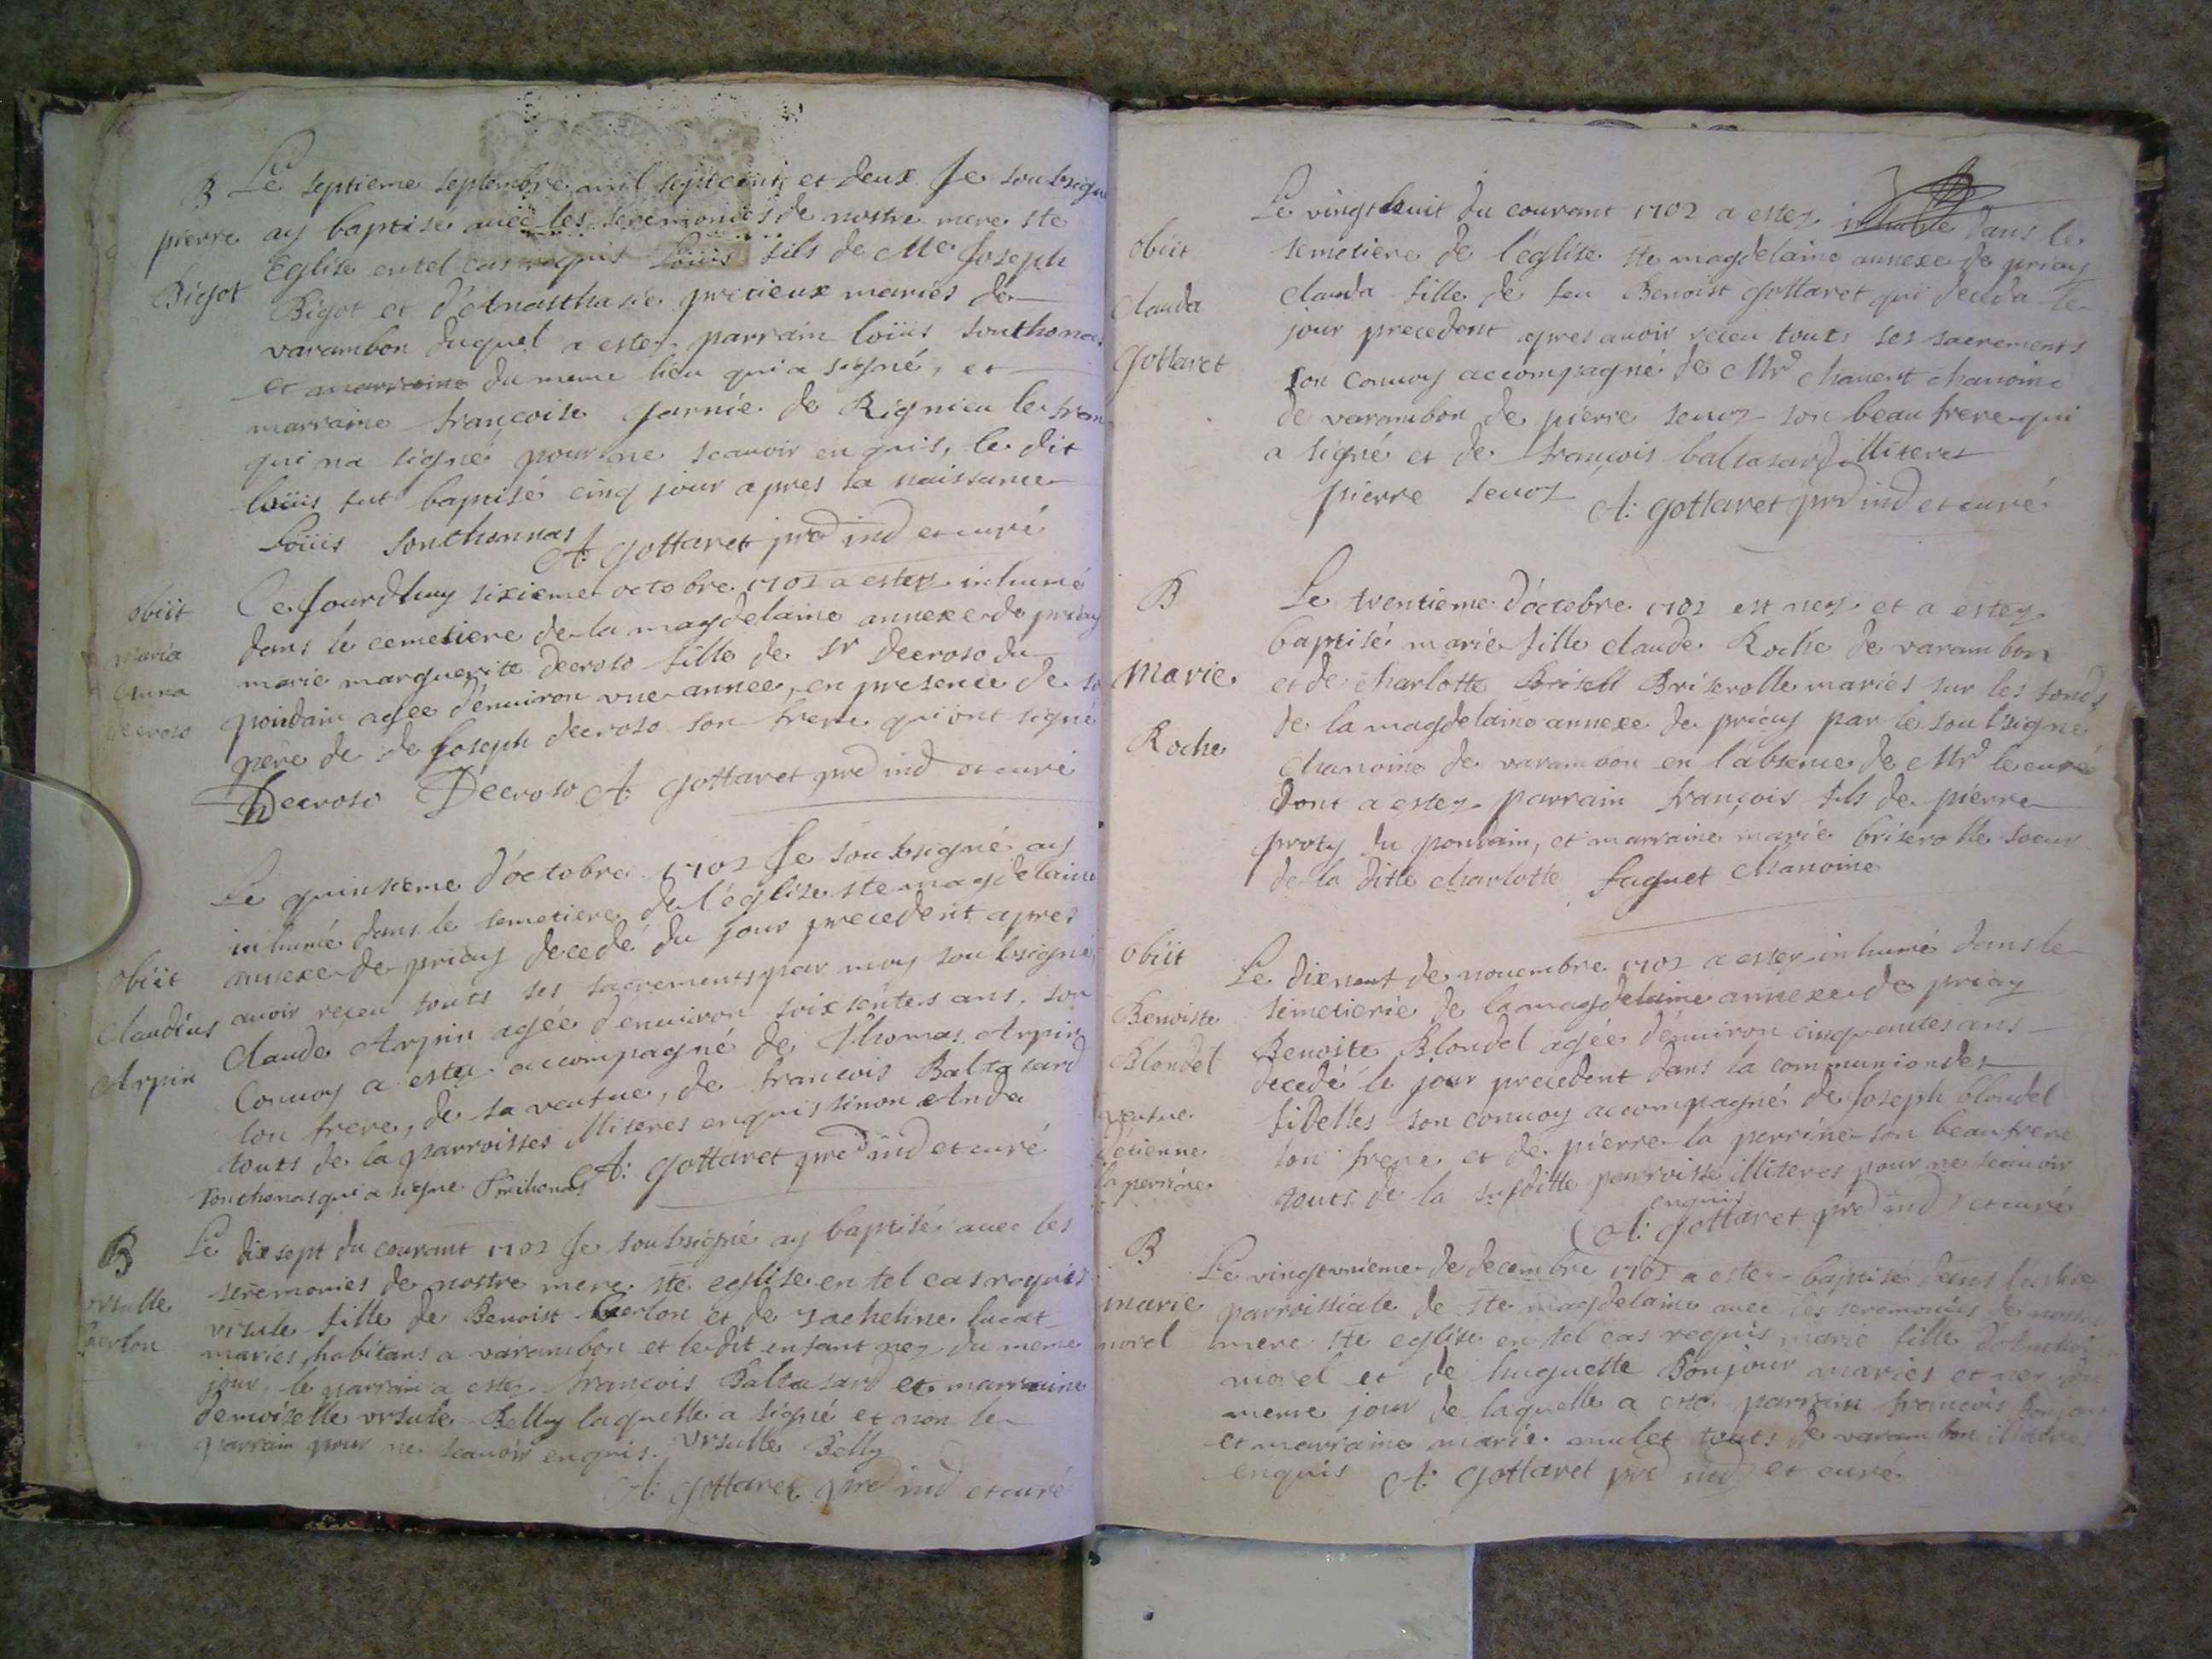 B Le septieme septembre mil sept cent et deux Je soubsigné
pierre ay baptisé avec les seremonies de nostre mere ste
Eglise en tel cas requis Loüis fils de Me Joseph
Bigot Bigot et d'Anasthasie precieux mariés de
varambon duquel a estez parrain loüis southonas
et marraine du meme lieu qui a signé, et
marraine françoise garnie de Rignieu le fran
qui na signé pour ne scavoir enquis, le dit
loüis fut baptisé cinq jour apres sa naissance
Loüis Southonnas A: gottaret pre ind et curé
obiit Ce Jourdhuy sixieme octobre 1702 a estez inhumé
maria dans le cemetiere de la magdelaine annexe de priay
Anna marie marguerite decroso fille de Sr Decroso du
decroso pondain agée d'environ une année, en presence de so
pere de de Joseph decroso son frere qui ont signé
Decroso Decroso A gottaret pre ind et curé
Le quinsieme d'octobre 1702 Je soubsigné ay
inhumé dans le semetiere de l'église ste magdelaine
obiit annexe de priay decedé du jour precedent apres
avoir reçeu touts ses sacrements par moy soubsigné
Claudius Claude Arpin agée d'environ soixsentes ans, son
Arpin Convoy a estez accompagné de Thomas Arpin
son frere, de sa veufue, de francois Baltasard
touts de la parroisses illiteres enquis sinon
Tonthonas qui a signe A: gottaret pre ind et curé
B Le dix sept du courant 1702 Je soubsigné ay baptisé avec les
seremonies de nostre mere ste eglise en tel cas requis
ursulle ursule fille de Benoist berlon et de Jacheline lucat
berlon mariés habitans a varambon et ledit enfant nez du meme
jour, le parrain a estez francois Baltasard et marraine
demoiselle ursule Belly laquelle a signé et non le
parrain pour ne scavoir enquis. Ursulle Belly
A: gottaret pre ind et curé
Le vingt huit du courant 1702 a estez dans le
obiit semetiere de l'église ste magdelaine annexe de priay
Clauda clauda fille de feu Benoist gottaret qui deceda le
jour precedent apres avoir reçeu touts ses sacrements
gottaret son convoy accompagné de Mr chanert chanoine
de varambon de pierre sevoz son beau frere qui
a signé et de françois baltasard illiteres
pierre sevoz A: gottaret pre ind et curé
B Le trentieme d'octobre 1702 est nez et a estez
baptisé marie fille claude Roche de varambon
Marie et de charlotte Brisell Briserolle mariés sur les fonds
de la magdelaine annexe de priay par le soubsigné
Roche chanoine de varambon en l'absence de Mr le curé
dont a estez parrain françois fils de pierre
proty du pondain, et marraine marie briserolle soeur
de la ditte charlotte Faguet chanoine
obiit Le dixneuf de novembre 1702 a estez inhumé dans le
Benoiste semetierie de la magdelaine annexe de priay
Blondel Benoiste Blondel agée d'environ cinquentes ans
decedé le jour precedent dans la communion des
veufue fidelles son convoy accompagné de Joseph blondel
d'étienne son frere et de pierre la perrine son beau frere
la perrine touts de la susditte parroisse illiteres pour ne scavoir
enquis
A: gottaret pre ind et curé
B Le vingt unieme de decembre 1702 a estez baptisé dans leglise
marie parroissiale de ste magdelaine avec les seremonies de nostre
morel mere ste eglise en tel cas requis marie fille
morel et de huguette Bonjour mariés et nez du
meme jour de laquelle a estez parrain françois Bonjour
et marraine marie mulet touts de varambon
enquis A: gottaret pre ind et curé